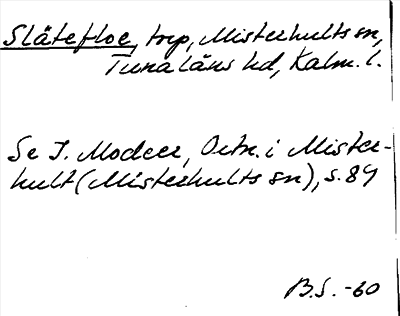 Slätefloe, trp, Misterhults sn,
Tunaläns hd, Kalm. l.
Se I. Modeer, Ortn. i Mister-
hult (Misterhults sn), s. 89
B.S. -60